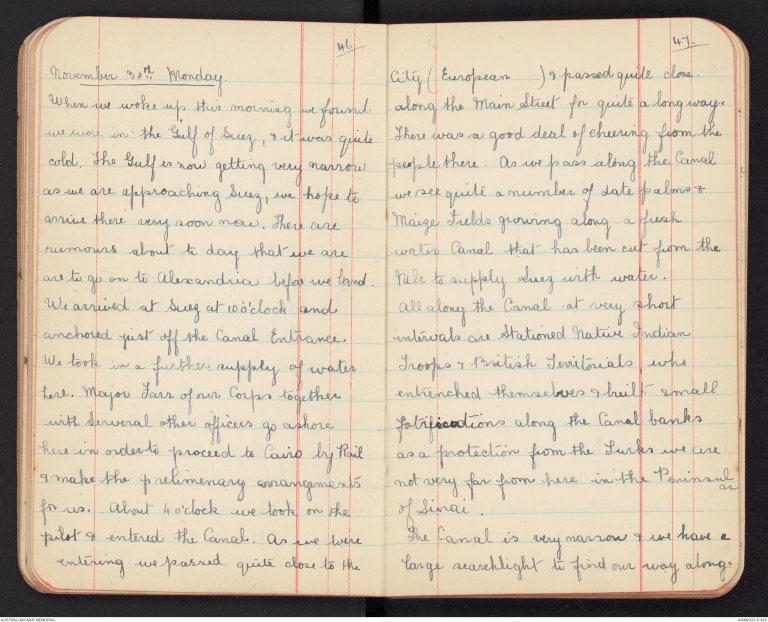 46
November 30th Monday.
When we woke up this morning we found
we were in the Gulf of Suez, & it was quite
cold. The Gulf is now getting very narrow
as we are approaching Suez, we hope to
arrive there very soon now. There are
rumours about to day that we are
are to go on to Alexandria before we land.
We arrived at Suez at 10 o'clock and
anchored just off the Canal Entrance.
We took in a further supply of water
here. Major Farr of our Corps together
with Serveral other officers go ashore
here in order to proceed to Cairo by Rail
& make the prelimenary arrangements
for us. About 4 o'clock we took on the
pilot & entered the Canal. As we were
entering we passed quite close to the
47.
City (European ) & passed quite close
along the Main Street for quite a long way.
There was a good deal of cheering from the
people there. As we pass along the Canal
we see quite a number of date palms &
Maize Fields growing along a fresh
water Canal that has been cut from the
Nile to supply Suez with water.
All along the Canal at very short
intervals are Stationed Native Indian
Troops & British Territorials, who
entrenched themselves & built small
fortifications along the Canal banks
as a protection from the Turks we are
not very far from here in the Peninsul
as
of Sinai.
The Canal is very narrow & we have a
large searchlight to find our way along.
AUSTRALIAN WAR MEMORIAL
AWM2022.6.202